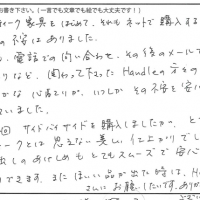 お書き下さい。(一言でも文章でも絵でも大丈夫です！)
ティーク家具をはじめて、それもネットで購入する
の不安はありました。
、電話での問い合わせ、その後のメールで
りなど、関わって下さったHandleの方々の
かな心配りが、いつしかその不安を安心
いました。
回サイドバイサイドを購入しましたが、と
ークとは思えない美しい仕上がりでし
出しのあけしめもとてもスムーズで安心
できます。またほしい品が出た時は、H
さんにお願いしたいです。ありが